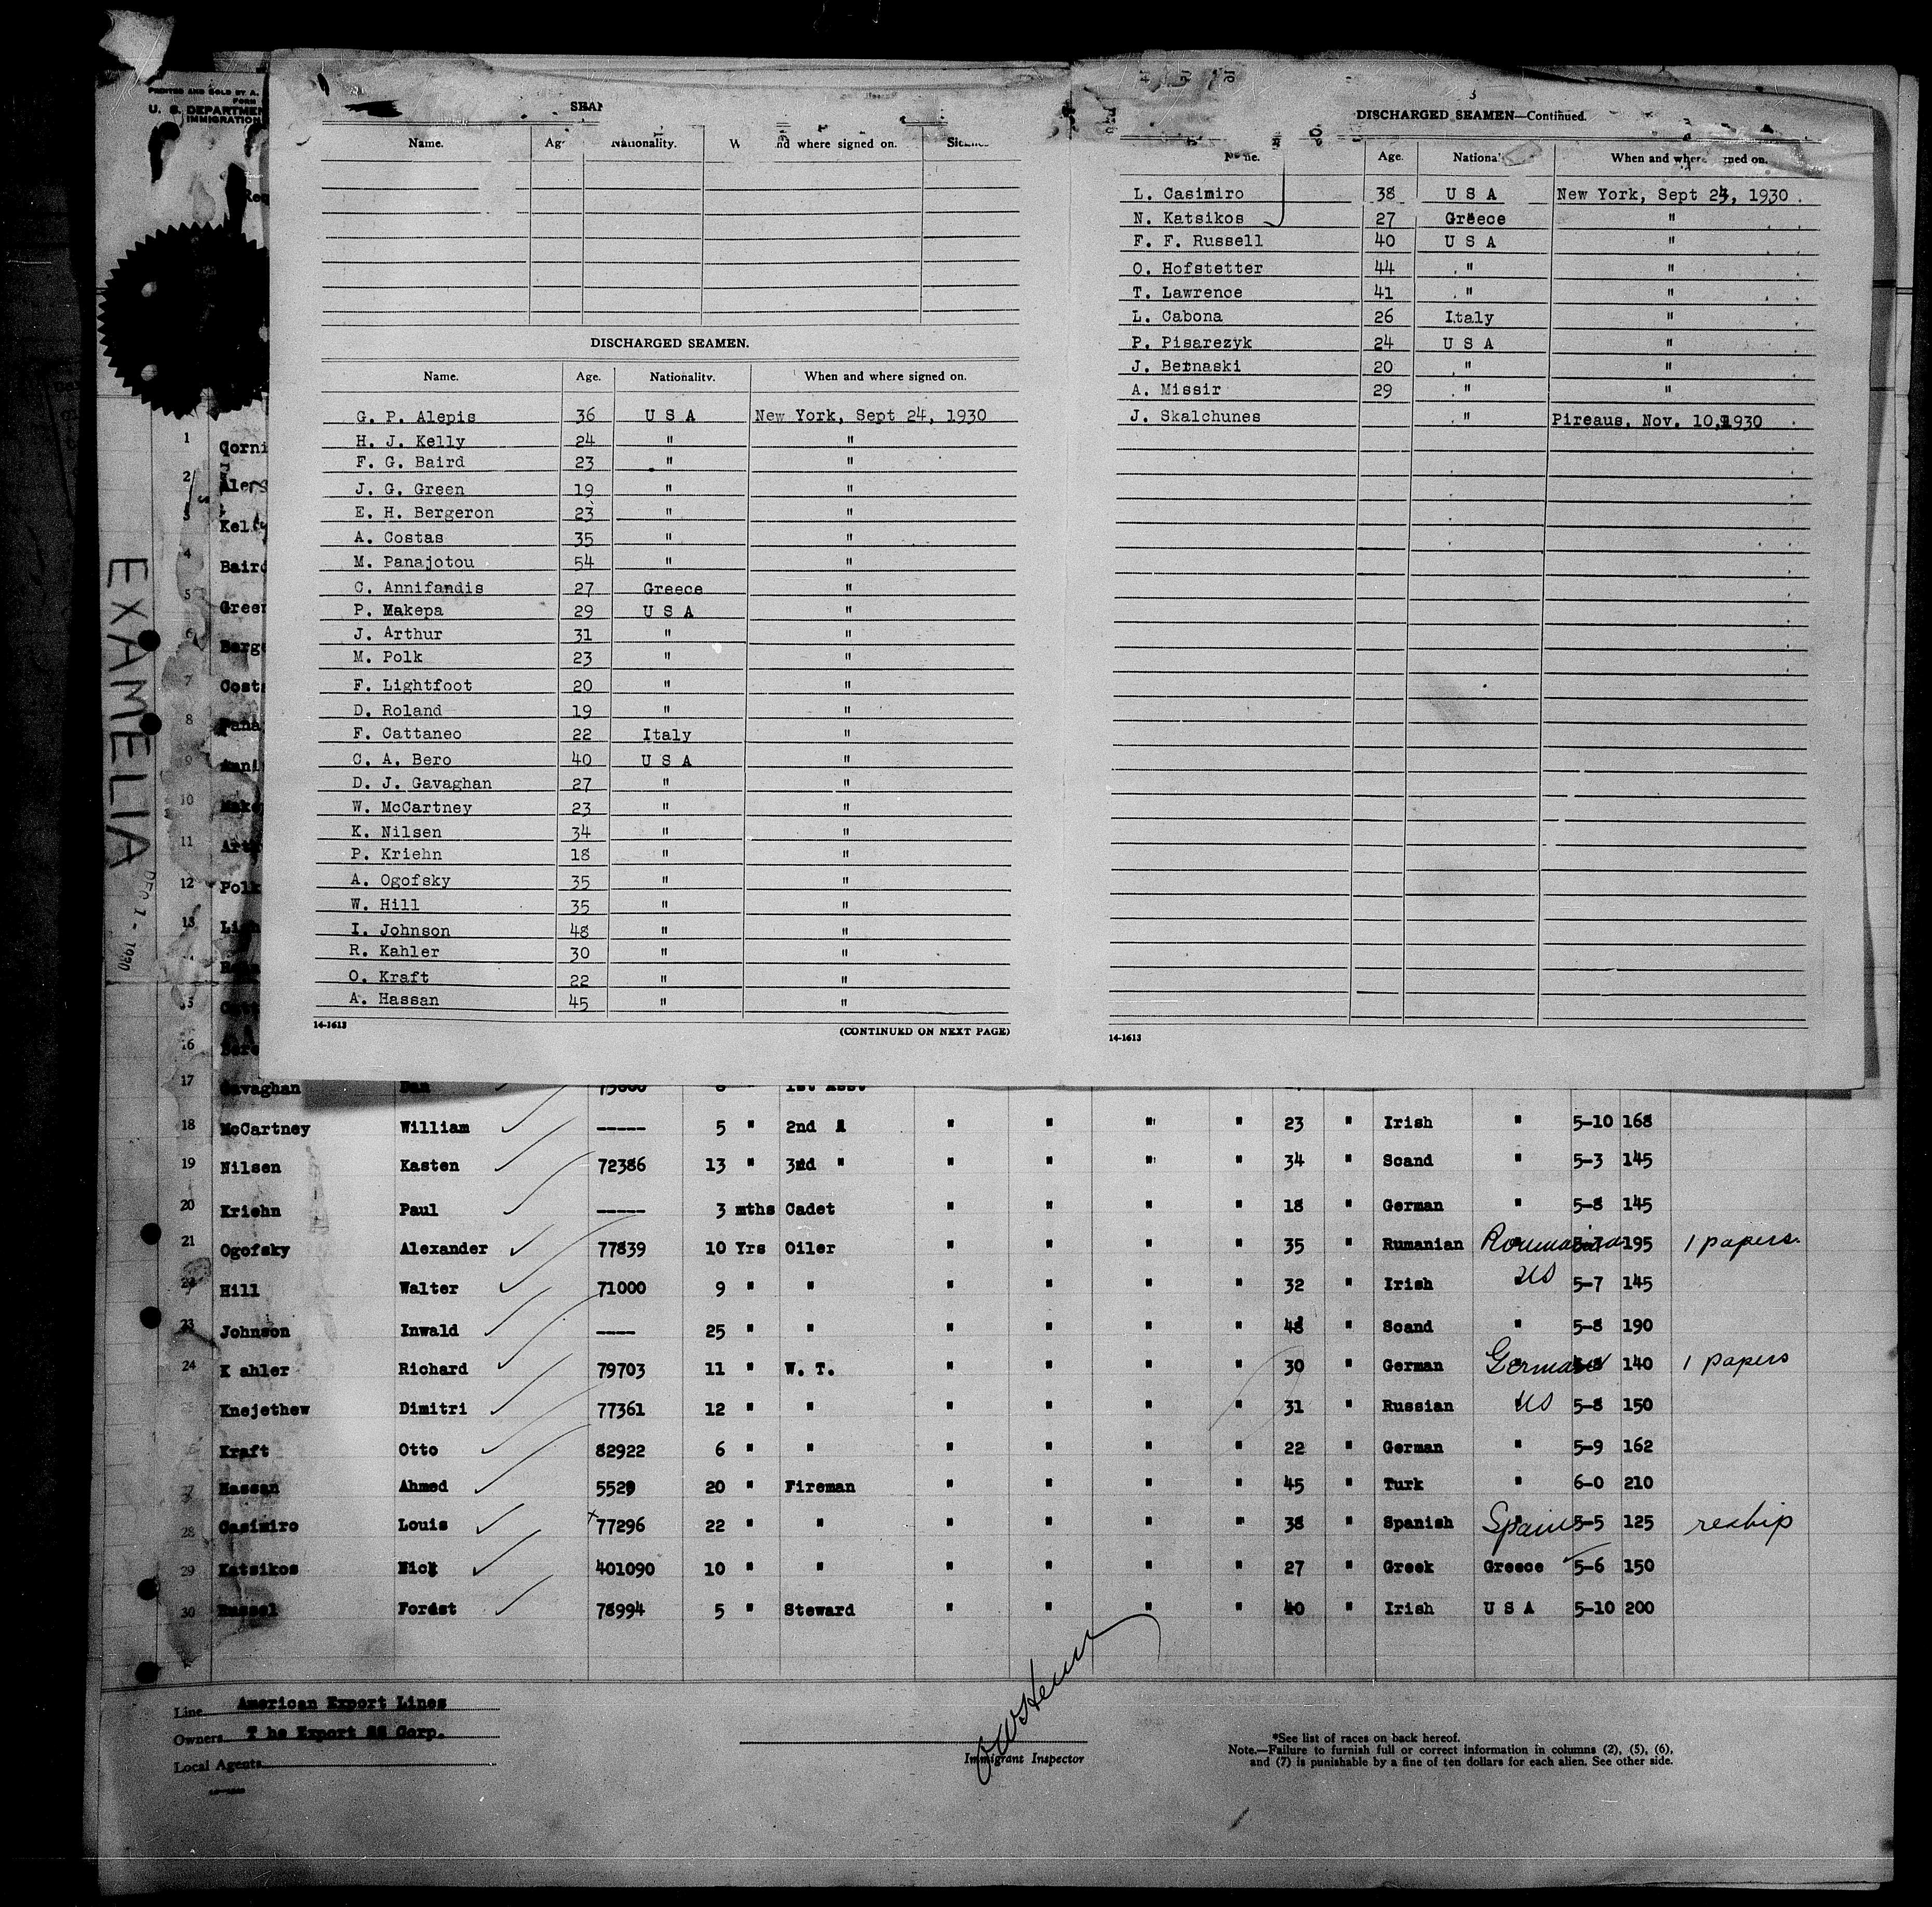 PRINTED AND SOLD BY A.
FORM
U. S. DEPARTMEN
IMMIGRATION
Req
EXAMELIA
DEC 1 - 1930
Name. Nationality. nd where signed on.
DISCHARGED SEAMEN.
Name. Age. Nationality. When and where signed on.
G. P. Alepis 36 U S A New York, Sept 24, 1930
H. J. Kelly 24 " "
F. G. Baird 23 " "
J. G. Green 19 " "
E. H. Bergeron 23 " "
A. Costas 35 " "
M. Panajotou 54 " "
C. Annifandis 27 Greece "
P. Makepa 29 U S A "
J. Arthur 31 " "
M. Polk 23 " "
F. Lightfoot 20 " "
D. Roland 19 " "
F. Cattaneo 22 Italy "
C. A. Bero 40 U S A "
D. J. Gavaghan 27 " "
W. McCartney 23 " "
K. Nilsen 34 " "
P. Kriehn 18 " "
A. Ogofsky 35 " "
W. Hill 35 " "
I. Johnson 48 " "
R. Kahler 30 " "
O. Kraft 22 " "
A. Hassan 45 " "
14-1613 (CONTINUED ON NEXT PAGE)
3
DISCHARGED SEAMEN—Continued.
Age. When and where signed on.
L. Casimiro 38 U S A New York, Sept 24, 1930
N. Katsikos 27 Greece "
F. F. Russell 40 U S A "
O. Hofstetter 44 " "
T. Lawrence 41 " "
L. Cabona 26 Italy "
P. Pisarezyk 24 U S A "
J. Bernaski 20 " "
A. Missir 29 " "
J. Skalchunes " Pireaus, Nov. 10, 1930
14-1613
1 Qorni
2 Aleps
3 Kell
4 Baird
5 Green
6 Berge
7 Costa
8 Pana
9 Anni
10 Make
11 Art
12 Polk
13 Ligh
15
16 Bero
17 Gavaghan Dan 75800 8 1st Asst
18 McCartney William ----- 5 " 2nd A " " " " 23 " Irish " 5-10 168
19 Nilsen Kasten 72386 13 " 3nd " " " " " 34 " Scand " 5-3 145
20 Kriehn Paul ----- 3 mths Cadet " " " " 18 " German " 5-8 145
21 Ogofsky Alexander 77839 10 Yrs Oiler " " " " 35 " Rumanian Roumania 5-7 195 1 papers.
22 Hill Walter 71000 9 " " " " " " 32 " Irish US 5-7 145
23 Johnson Inwald ---- 25 " " " " " " 48 " Scand " 5-8 190
24 K ahler Richard 79703 11 " W. T. " " " " 30 " German Germany 5-8 140 1 papers
Knejethew Dimitri 77361 12 " " " " " " 31 " Russian US 5-8 150
Kraft Otto 82922 6 " " " " " " 22 " German " 5-9 162
27 Hassan Ahmed 5529 20 " Fireman " " " " 45 " Turk " 6-0 210
28 Casimiro Louis 77296 22 " " " " " " 38 " Spanish Spain 5-5 125 reship
29 Katsikos Nick 401090 10 " " " " " " 27 " Greek Greece 5-6 150
30 Russel Forest 78994 5 " Steward " " " " 40 " Irish U S A 5-10 200
Line American Export Lines
Owners T he Export SS Corp.
Local Agents
Immigrant Inspector
*See list of races on back hereof.
Note.—Failure to furnish full or correct information in columns (2), (5), (6),
and (7) is punishable by a fine of ten dollars for each alien. See other side.